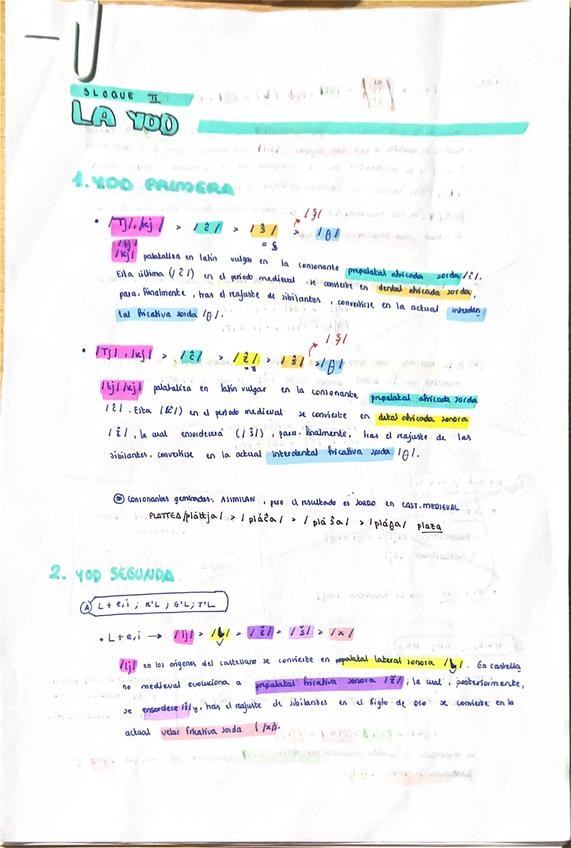 BLOQUE II
LA YOD
1. YOD PRIMERA
/s̩/
• /Tj/, /kj/ > /ĉ/ > /ŝ/ > /θ/
= ç
/tj/
/kj/ palataliza en latín vulgar en la consonante prepalatal africada sorda /ĉ/.
Esta última (/ĉ/) en el periodo medieval se convierte en dental africada sorda,
para, finalmente, tras el reajuste de sibilantes, convertirse en la actual interden
tal fricativa sorda /θ/.
/s̩/
• /Tj/, /kj/ > /ĉ/ > /ẑ/ > /ŝ/ > /θ/
= z
/tj/ /kj/ palataliza en latín vulgar en la consonante prepalatal africada sorda
/ĉ/. Esta (/ĉ/) en el periodo medieval se convierte en detal africada sonora
/ẑ/, la cual ensordecerá (/ŝ/), para, finalmente, tras el reajuste de las
sibilantes, convertirse en la actual interdental fricativa sorda /θ/.
⊛ Consonantes geminadas: ASIMILAN, pero el resultado es SORDO en CAST. MEDIEVAL
PLATTEA /pláttja/ > /pláĉa/ > /pláŝa/ > /pláθa/ plaza
2. YOD SEGUNDA
Ⓐ L + e,i ; K'L ; G'L ; T'L
• L + e,i → /lj/ > /ʎ/ > /ž/ > /š/ > /x/
/lj/ en los orígenes del castellano se convierte en prepalatal lateral sonora /ʎ/. En castella
no medieval evoluciona a prepalatal fricativa sonora /ž/, la cual, posteriormente,
se ensordece /š/ y, tras el reajuste de sibilantes en el siglo de oro se convierte en la
actual velar fricativa sorda (/x/).